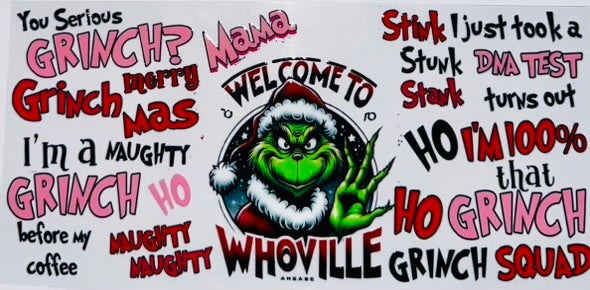 You Serious
GRINCH?
Mama
Grinch
merry
Mas
I'm a NAUGHTY
GRINCH
HO
before MY
coffee
NAUGHTY
NAUGHTY
WELCOME TO
WHOVILLE
Stink
Stunk
Stank
I just took a
DNA TEST
turns out
HO
I'M 100%
that
HO
GRINCH
GRINCH SQUAD